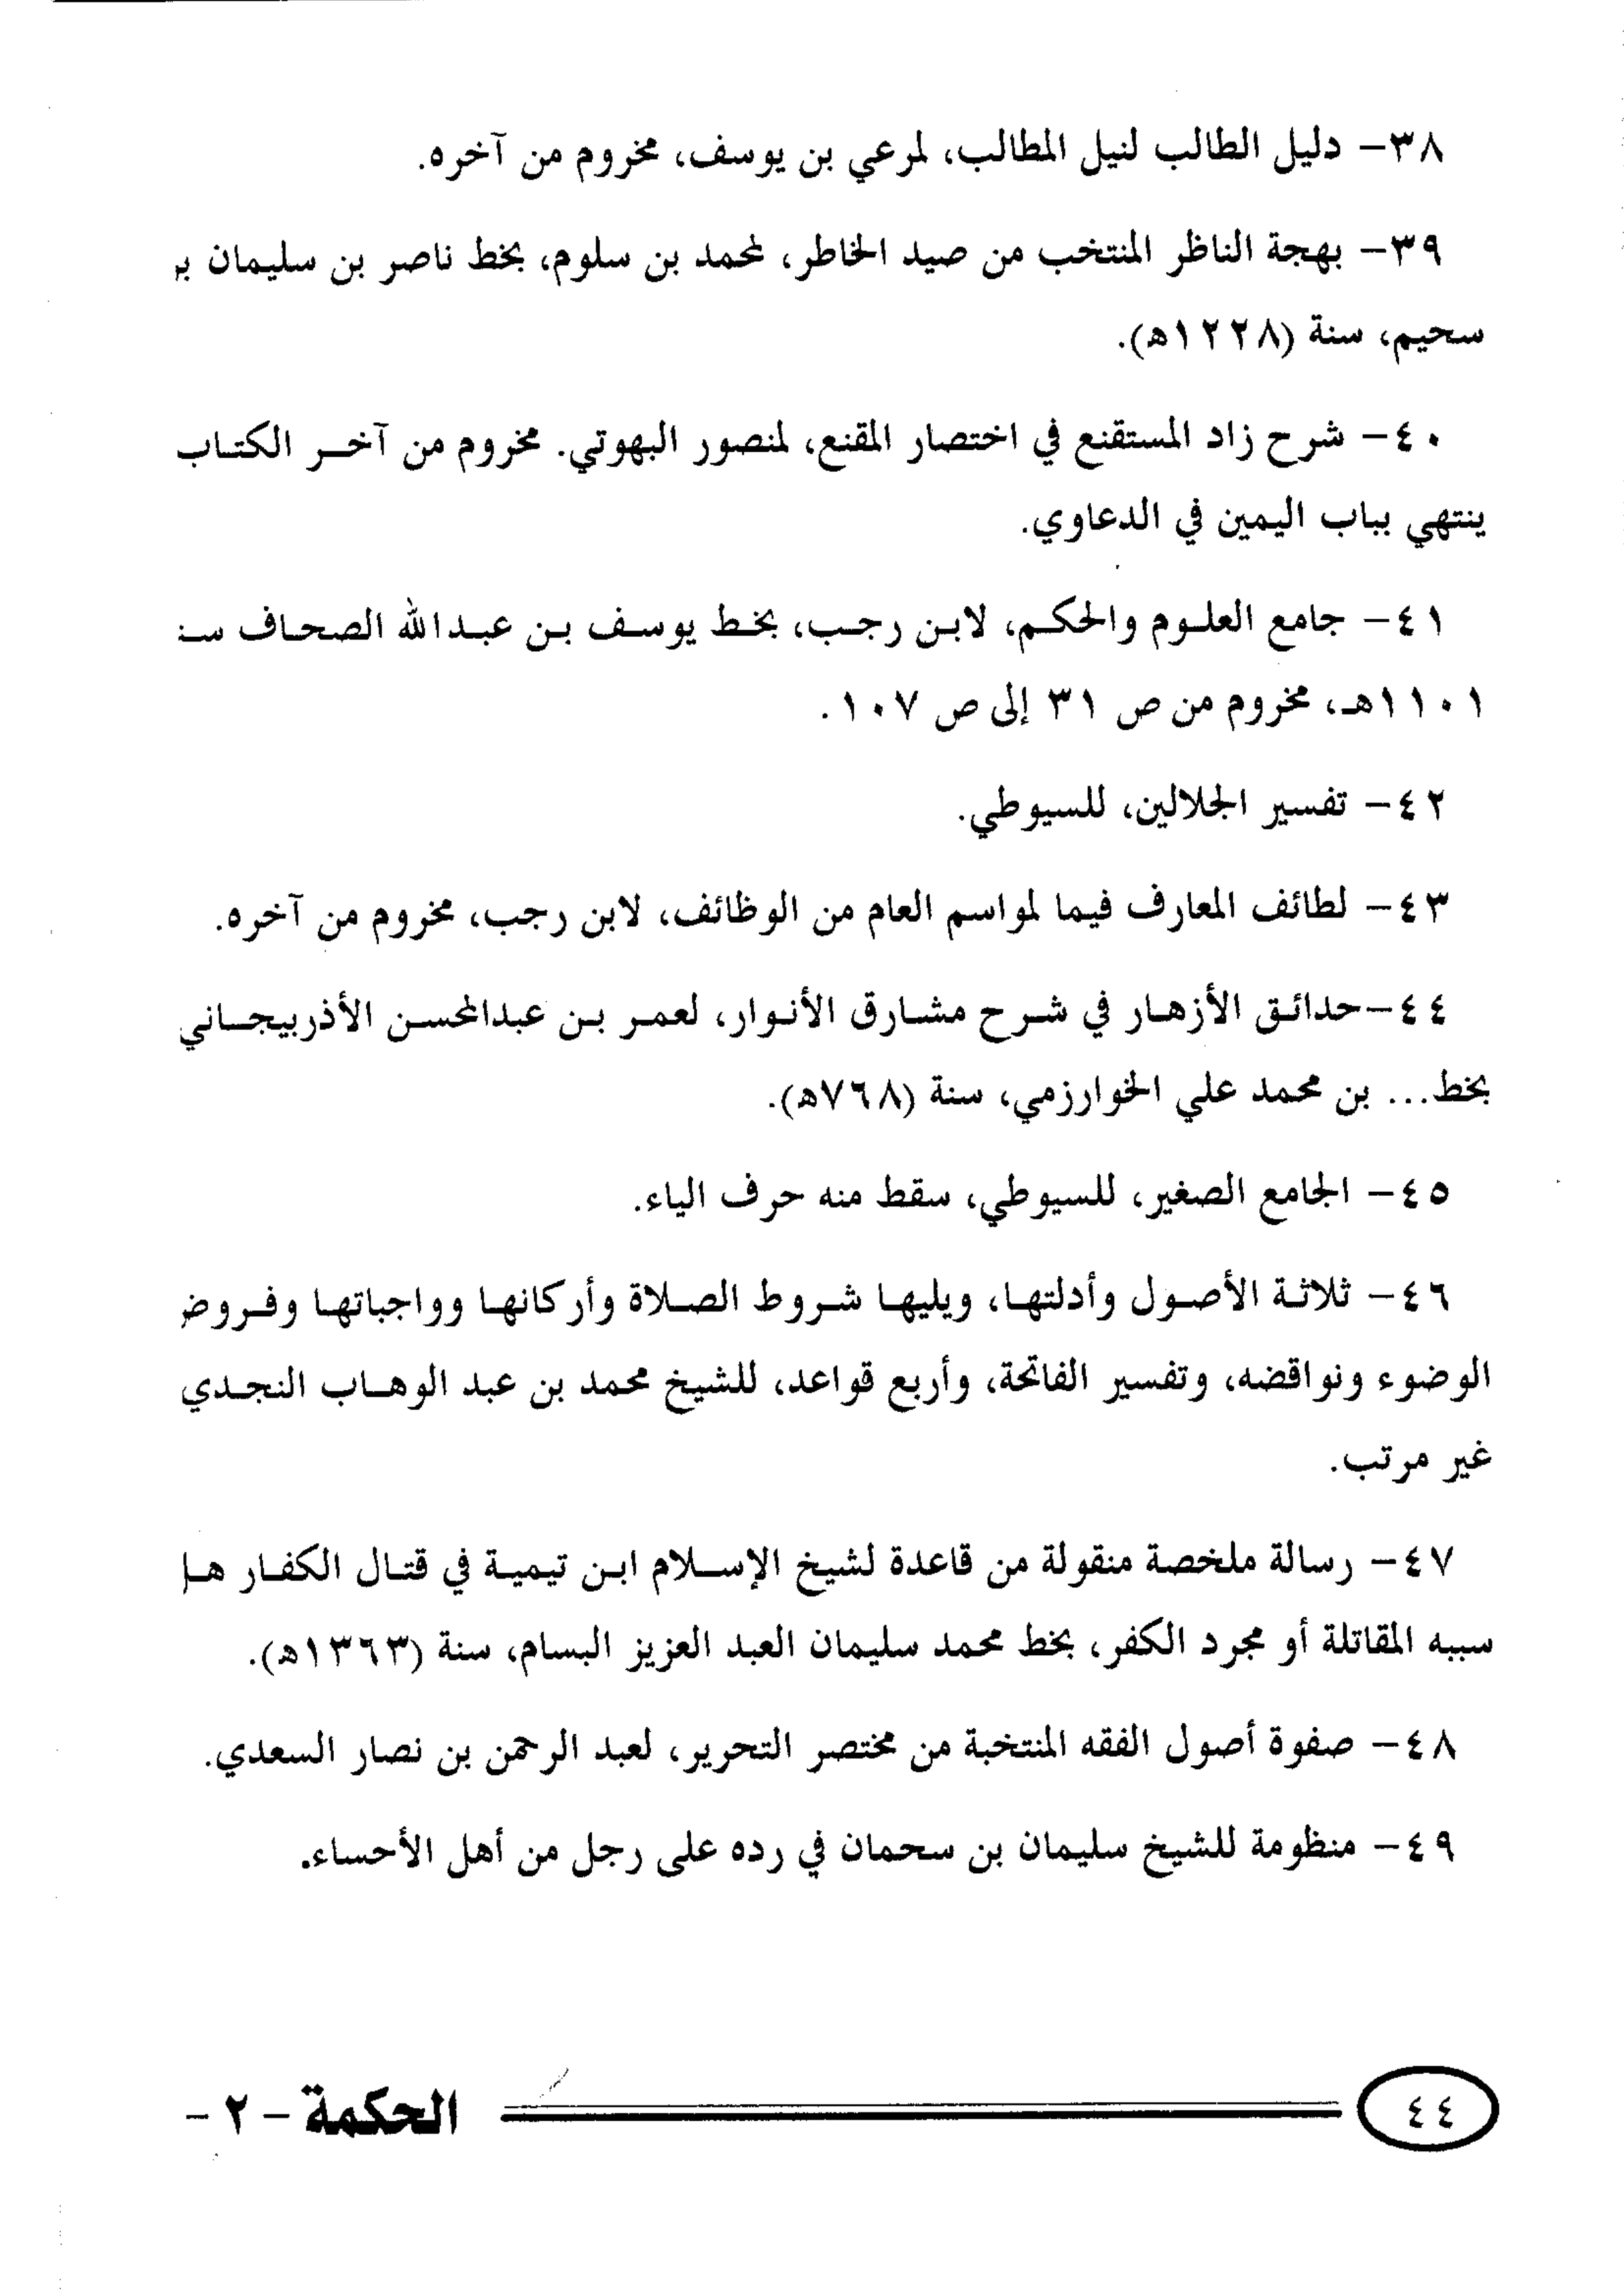 ٣٨- دليل الطالب لنيل المطالب، لمرعي بن يوسف، مخروم من آخره.
٣٩- بهجة الناظر المنتخب من صيد الخاطر، لمحمد بن سلوم، بخط ناصر بن سليمان
سحيم، سنة (١٢٢٨ه).
٤٠- شرح زاد المستقنع في اختصار المقنع، لمنصور البهوتي. مخروم من آخر الكتاب
ينتهي بباب اليمين في الدعاوي.
٤١- جامع العلوم والحكم، لابن رجب، بخط يوسف بن عبدالله الصحاف
١١٠١هـ، مخروم من ص ٣١ إلى ص ١٠٧.
٤٢- تفسير الجلالين، للسيوطي.
٤٣- لطائف المعارف فيما لمواسم العام من الوظائف، لابن رجب، مخروم من آخره.
٤٤-حدائق الأزهار في شرح مشارق الأنوار، لعمر بن عبدالمحسن الأذربيجاني
بخط... بن محمد علي الخوارزمي، سنة (٧٦٨ه).
٤٥- الجامع الصغير، للسيوطي، سقط منه حرف الياء.
٤٦- ثلاثة الأصول وأدلتها، ويليها شروط الصلاة وأركانها وواجباتها وفروض
الوضوء ونواقضه، وتفسير الفاتحة، وأربع قواعد، للشيخ محمد بن عبد الوهاب النجدي
غير مرتب.
٤٧- رسالة ملخصة منقولة من قاعدة لشيخ الإسلام ابن تيمية في قتال الكفار هل
سببه المقاتلة أو مجرد الكفر، بخط محمد سليمان العبد العزيز البسام، سنة (١٣٦٣ه).
٤٨- صفوة أصول الفقه المنتخبة من مختصر التحرير، لعبد الرحمن بن نصار السعدي.
٤٩- منظومة للشيخ سليمان بن سحمان في رده على رجل من أهل الأحساء.
٤٤ الحكمة - ٢ -